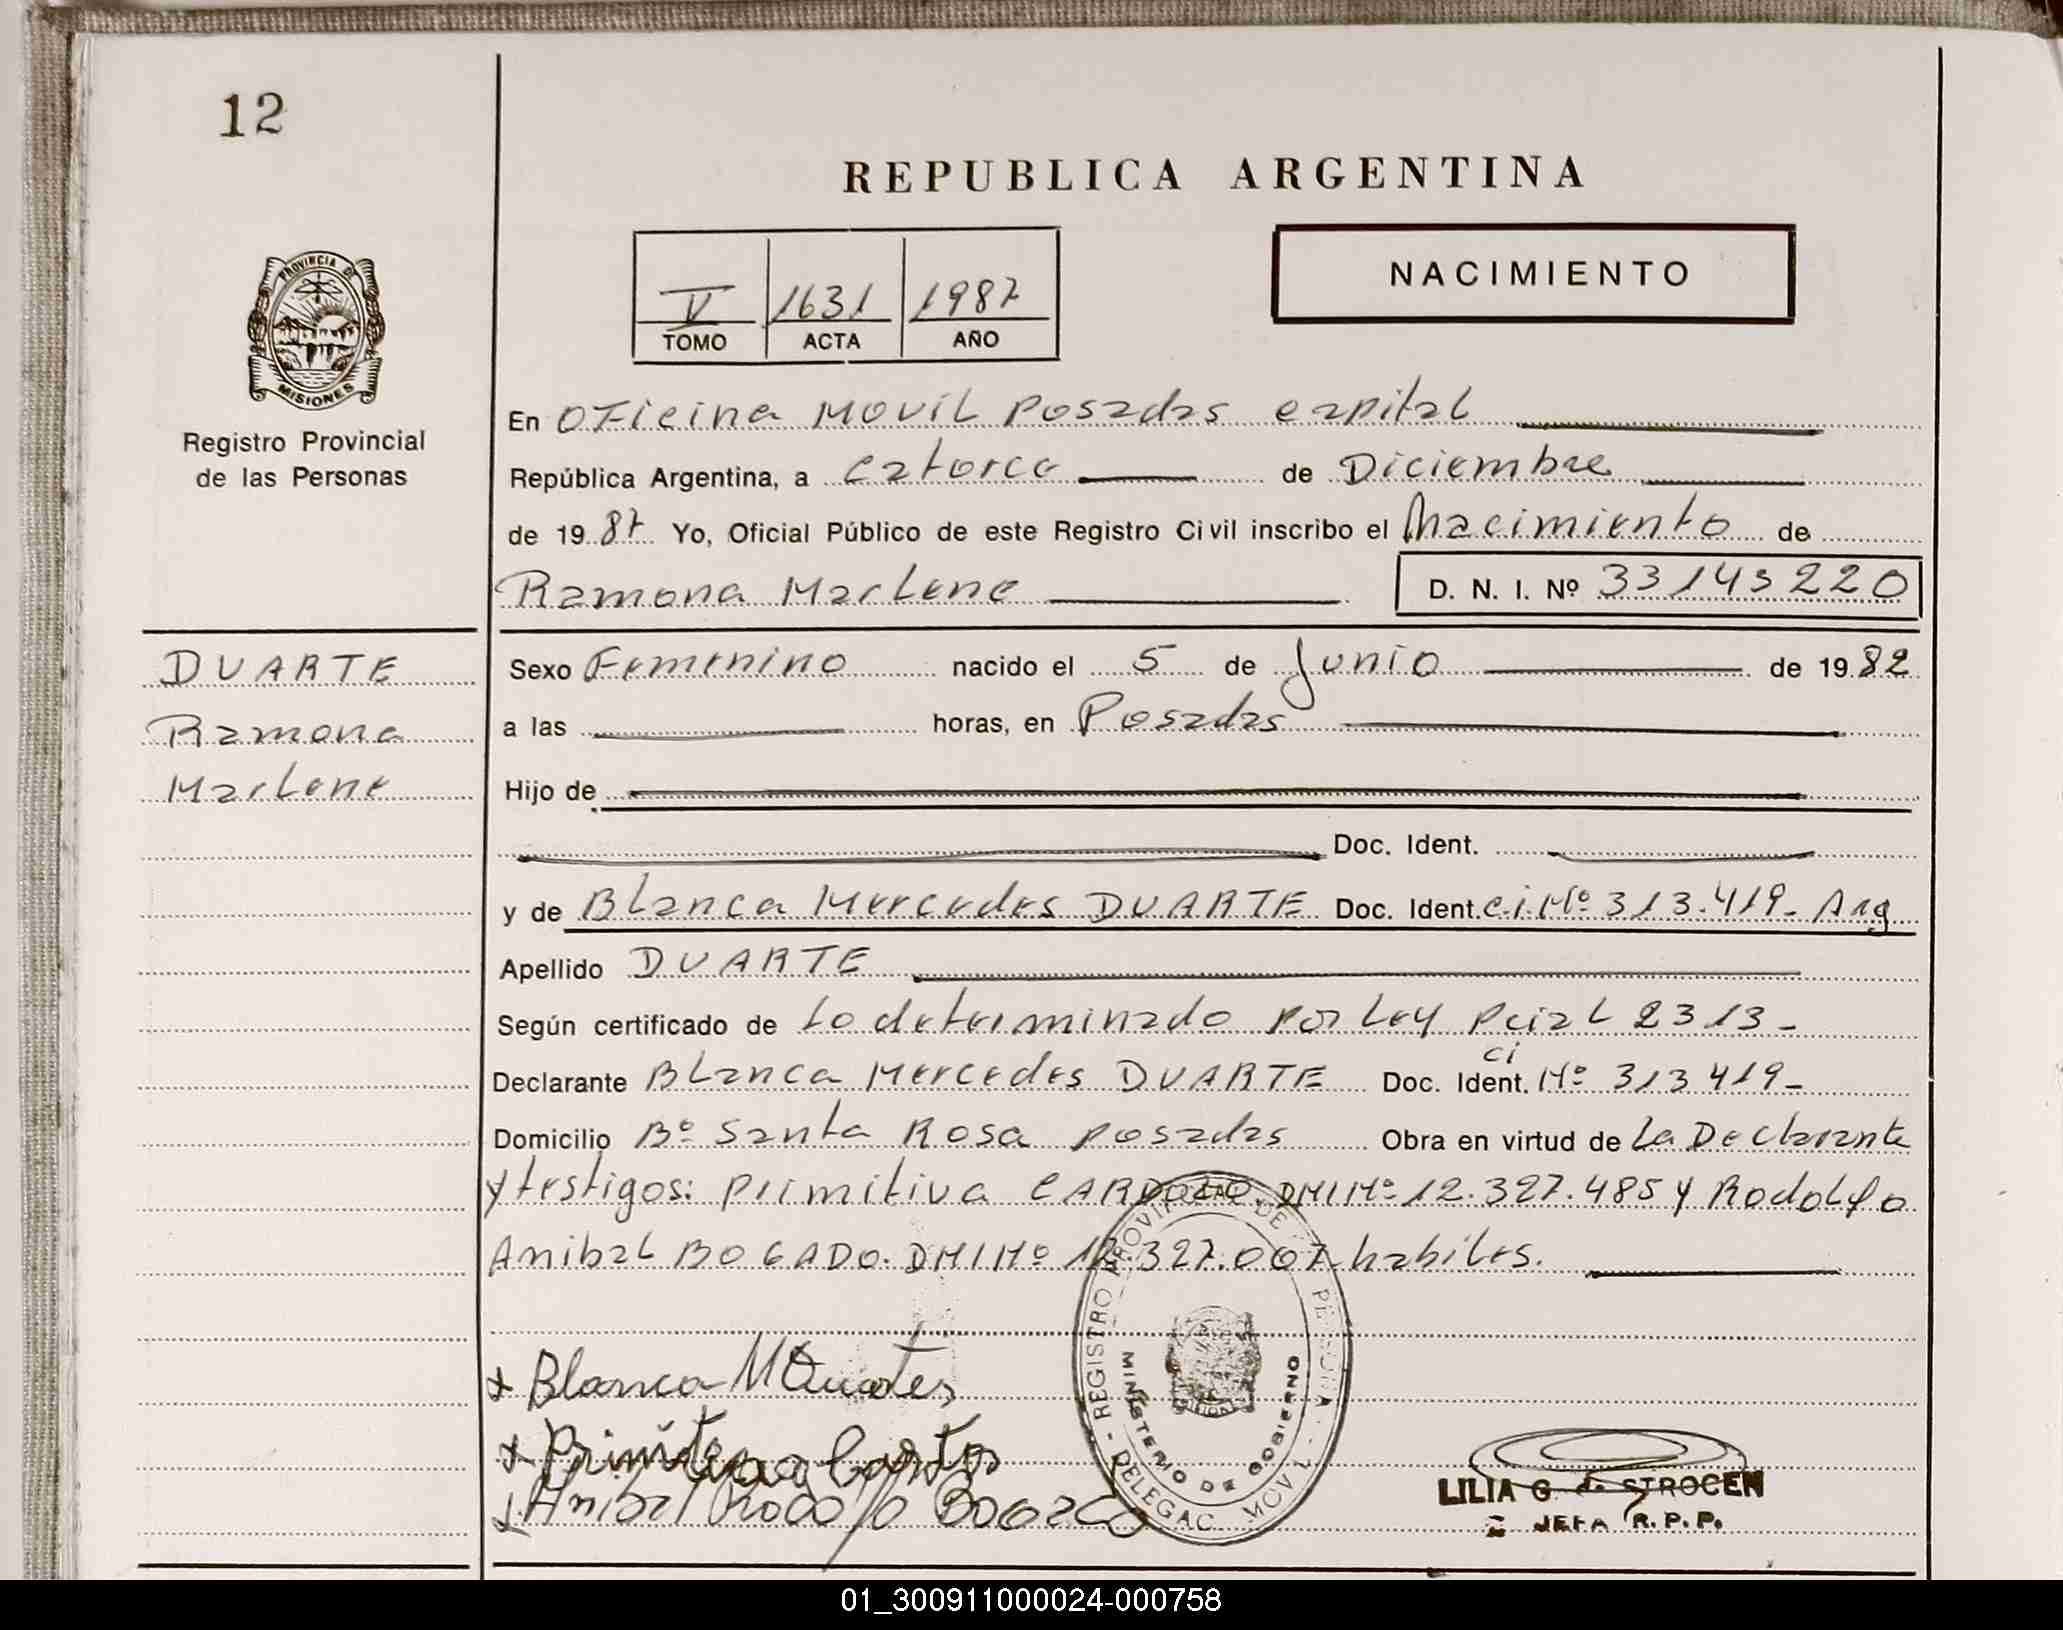 12
REPUBLICA ARGENTINA
NACIMIENTO
V 1631 1987
TOMO ACTA AÑO
PROVINCIA DE
MISIONES
Registro Provincial
de las Personas
En OFicina MOVIL Posadas capital
República Argentina, a catorce de Diciembre
de 19 87 Yo, Oficial Público de este Registro Civil inscribo el Nacimiento de
Ramona Marlene D. N. I. Nº 33143220
DUARTE
Ramona
Marlene
Sexo Femenino nacido el 5 de Junio de 19 82
a las horas, en Posadas
Hijo de
Doc. Ident.
y de Blanca Mercedes DUARTE Doc. Ident. c.i. Nº 313.419- Arg
Apellido DUARTE
Según certificado de Lo determinado por Ley Pcial 2313-
Declarante Blanca Mercedes DUARTE Doc. Ident. ci Nº 313419-
Domicilio Bº Santa Rosa Posadas Obra en virtud de La Declarante
y testigos: Primitiva CARDOZO DNI Nº 12.327.485 y Rodolfo
Anibal BOGADO. DNI Nº 12.327.007 habiles.
x Blanca M Duarte
REGISTRO PROVINCIAL DE
MINISTERIO DE GOBIERNO
DELEGAC. MOVIL
LILIA G. de STROCEN
JEFA R.P.P.
01_300911000024-000758